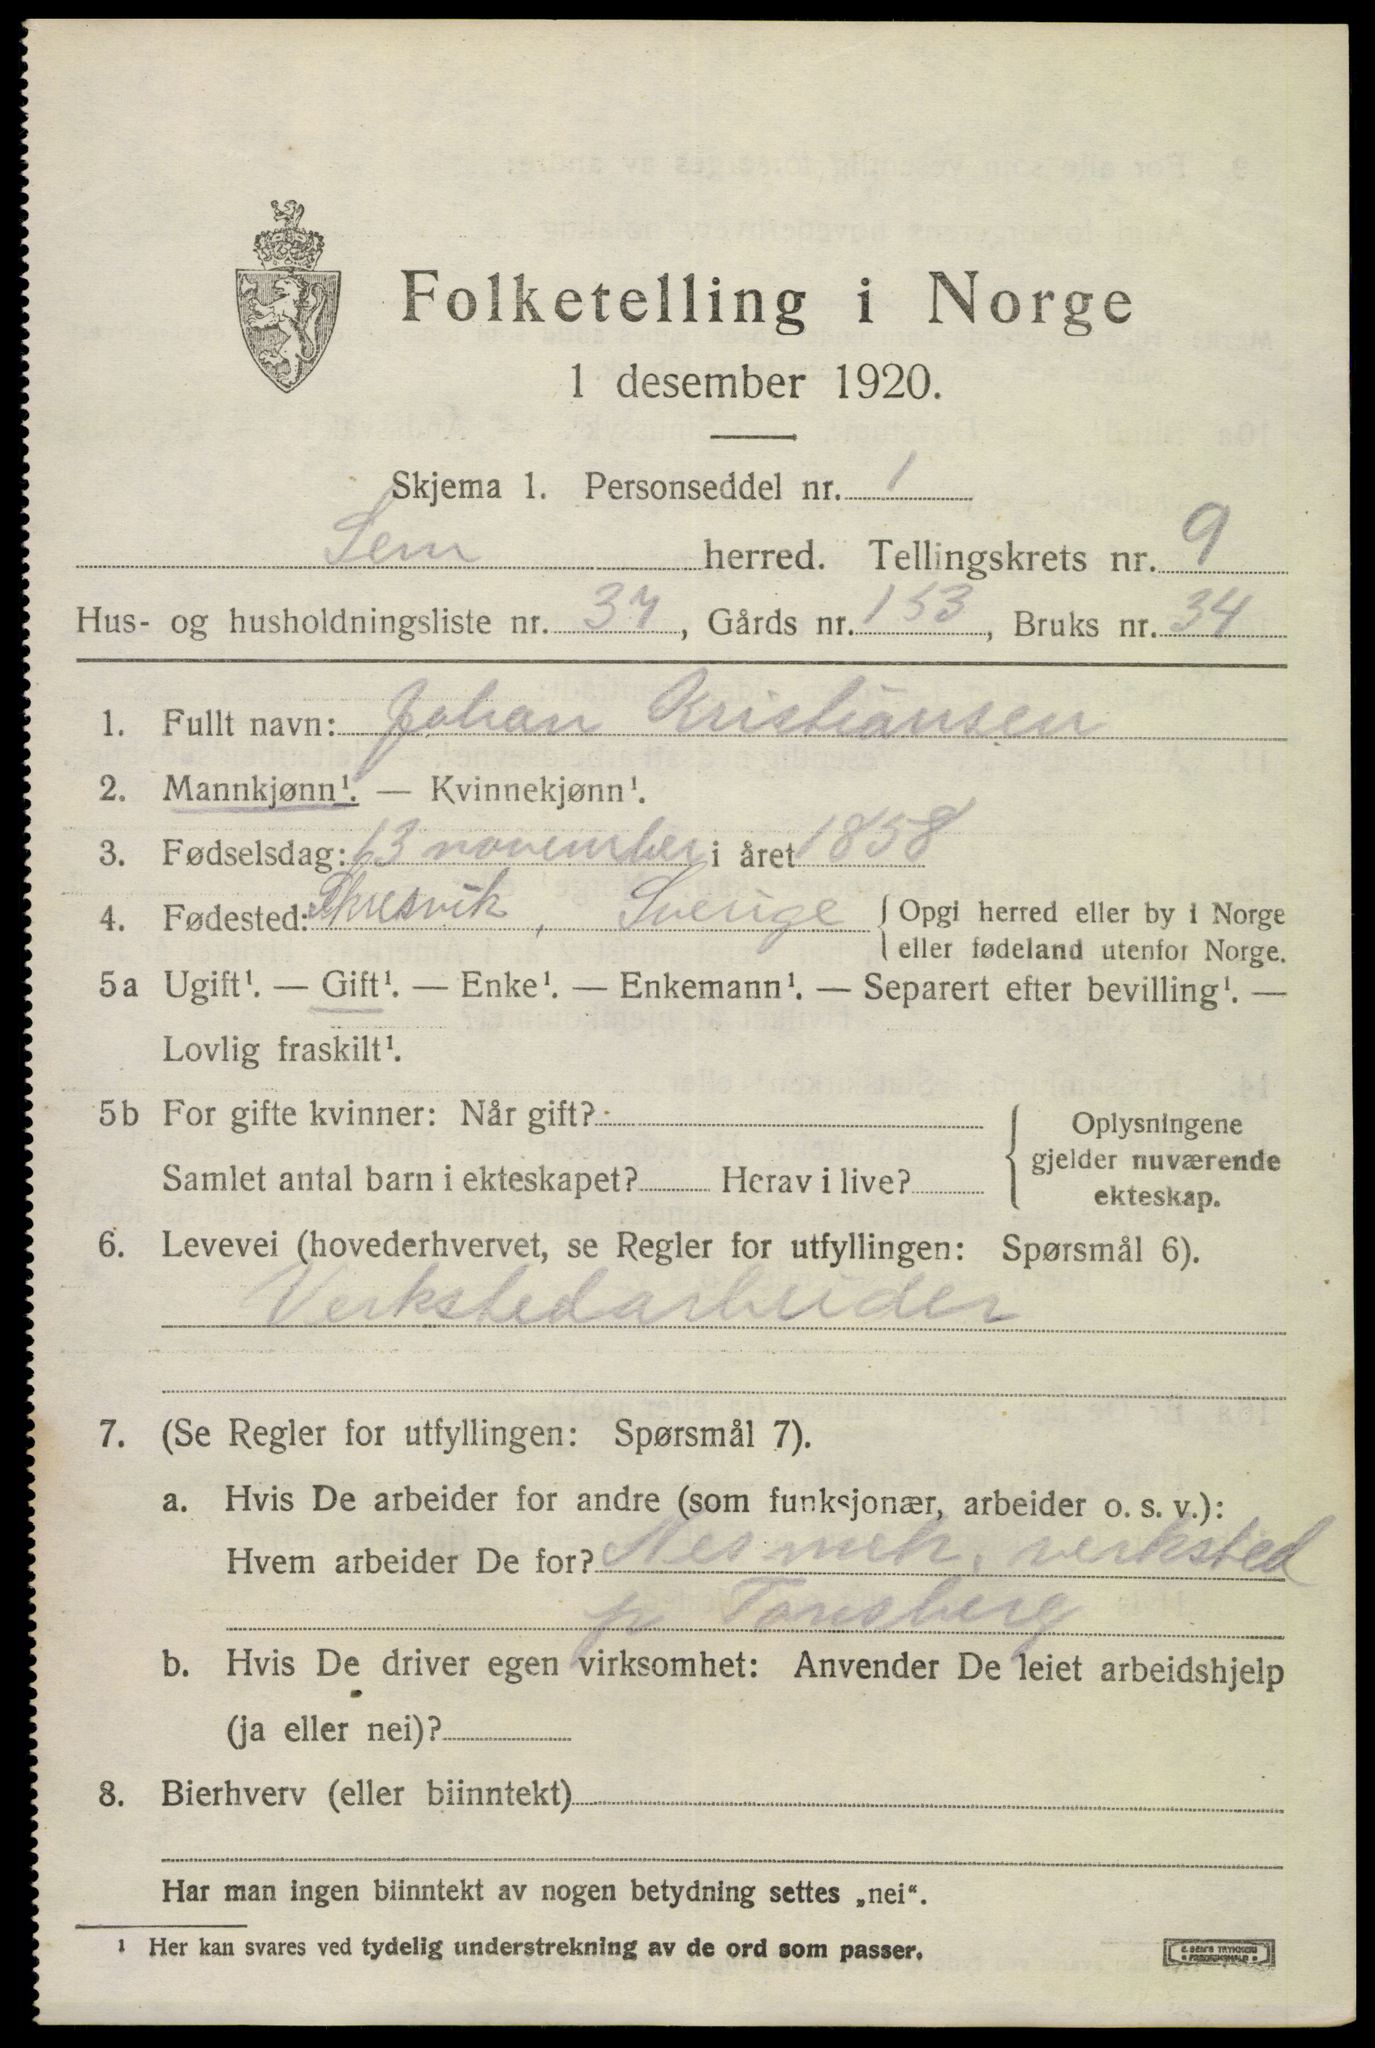 Folketelling i Norge
1 desember 1920.
Skjema 1. Personseddel nr. 1
Sem herred. Tellingskrets nr. 9
Hus- og husholdningsliste nr. 37, Gårds nr. 153, Bruks nr. 34
1. Fullt navn: Johan Kristiansen
2. Mannkjønn¹. — Kvinnekjønn¹.
3. Fødselsdag: 13 november i året 1858
4. Fødested: , Sverige { Opgi herred eller by i Norge
eller fødeland utenfor Norge.
5a Ugift¹. — Gift¹. — Enke¹. — Enkemann¹. — Separert efter bevilling¹. —
Lovlig fraskilt¹.
5b For gifte kvinner: Når gift?
Samlet antal barn i ekteskapet? Herav i live?
Oplysningene
gjelder nuværende
ekteskap.
6. Levevei (hovederhvervet, se Regler for utfyllingen: Spørsmål 6).
Verkstedarbeider
7. (Se Regler for utfyllingen: Spørsmål 7).
a. Hvis De arbeider for andre (som funksjonær, arbeider o. s. v.):
Hvem arbeider De for? Nes mek. verksted
pr Tønsberg
b. Hvis De driver egen virksomhet: Anvender De leiet arbeidshjelp
(ja eller nei)?
8. Bierhverv (eller biinntekt)
Har man ingen biinntekt av nogen betydning settes „nei“.
¹ Her kan svares ved tydelig understrekning av de ord som passer.